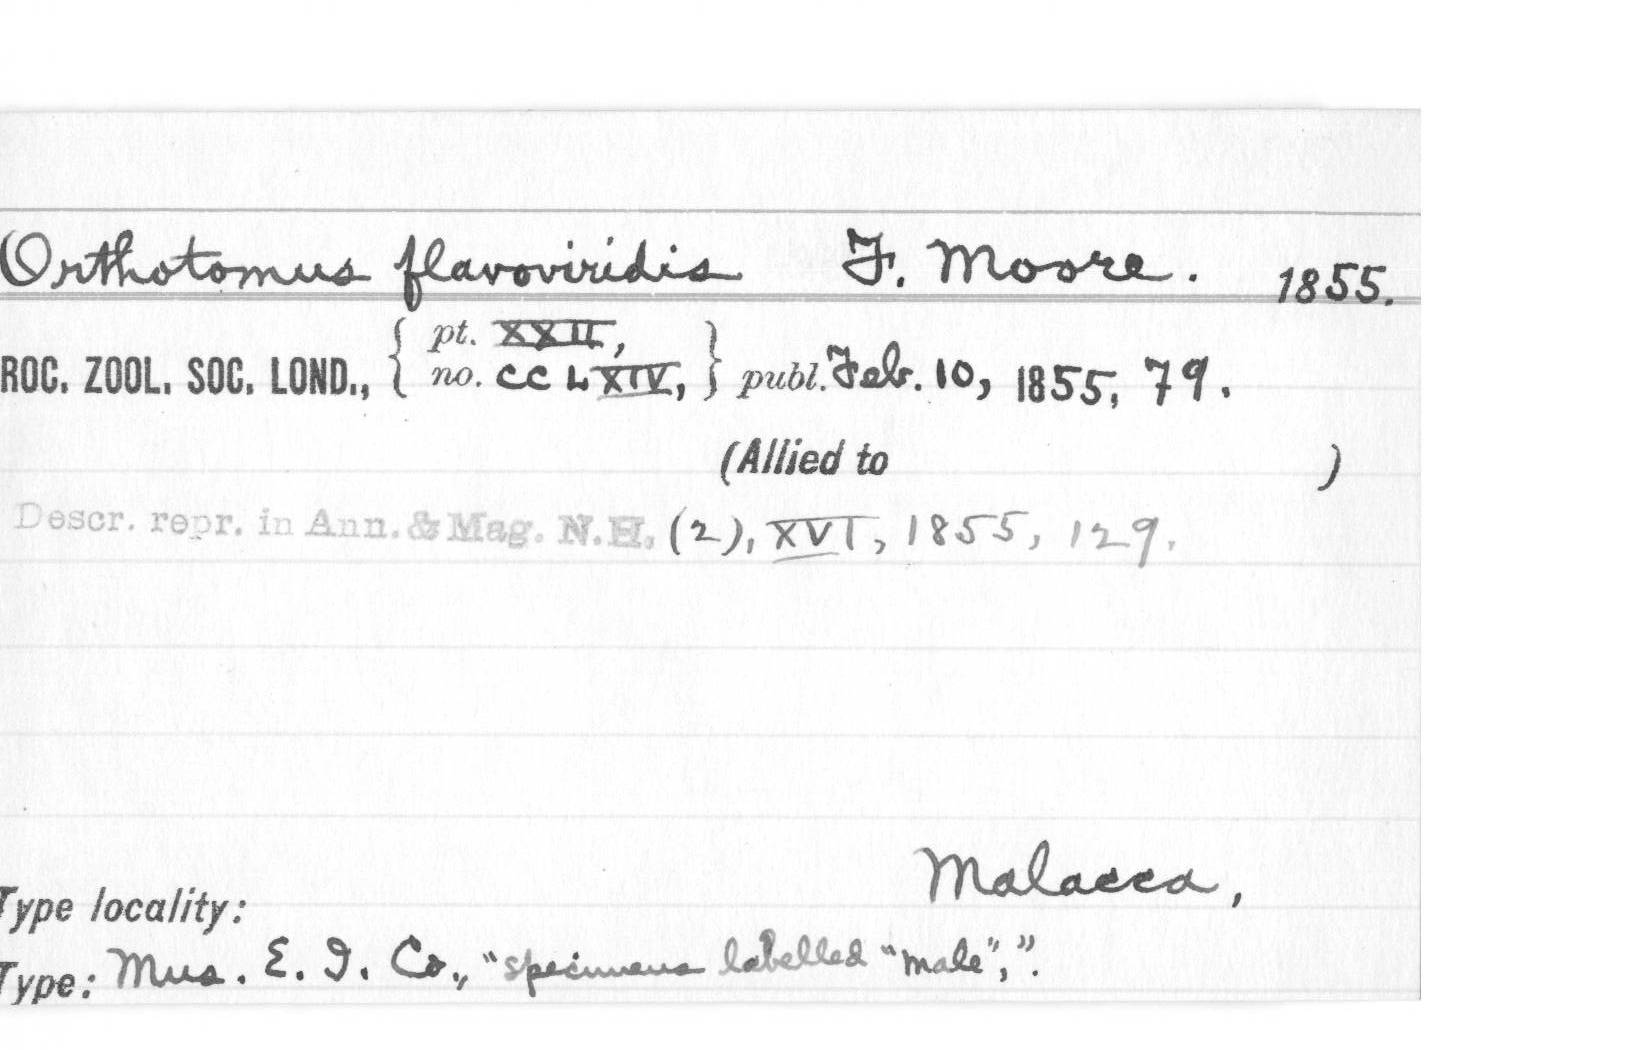 Orthotomus flavoviridis F. Moore. 1855.
ROC. ZOOL. SOC. LOND., { pt. XXII, no. CCLXIV, } publ. Feb. 10, 1855, 79.
(Allied to )
Descr. repr. in Ann. & Mag. N.H. (2), XVI, 1855, 129.
Malacca,
Type locality:
Type: Mus. E. I. Co., "specimens labelled "male",".